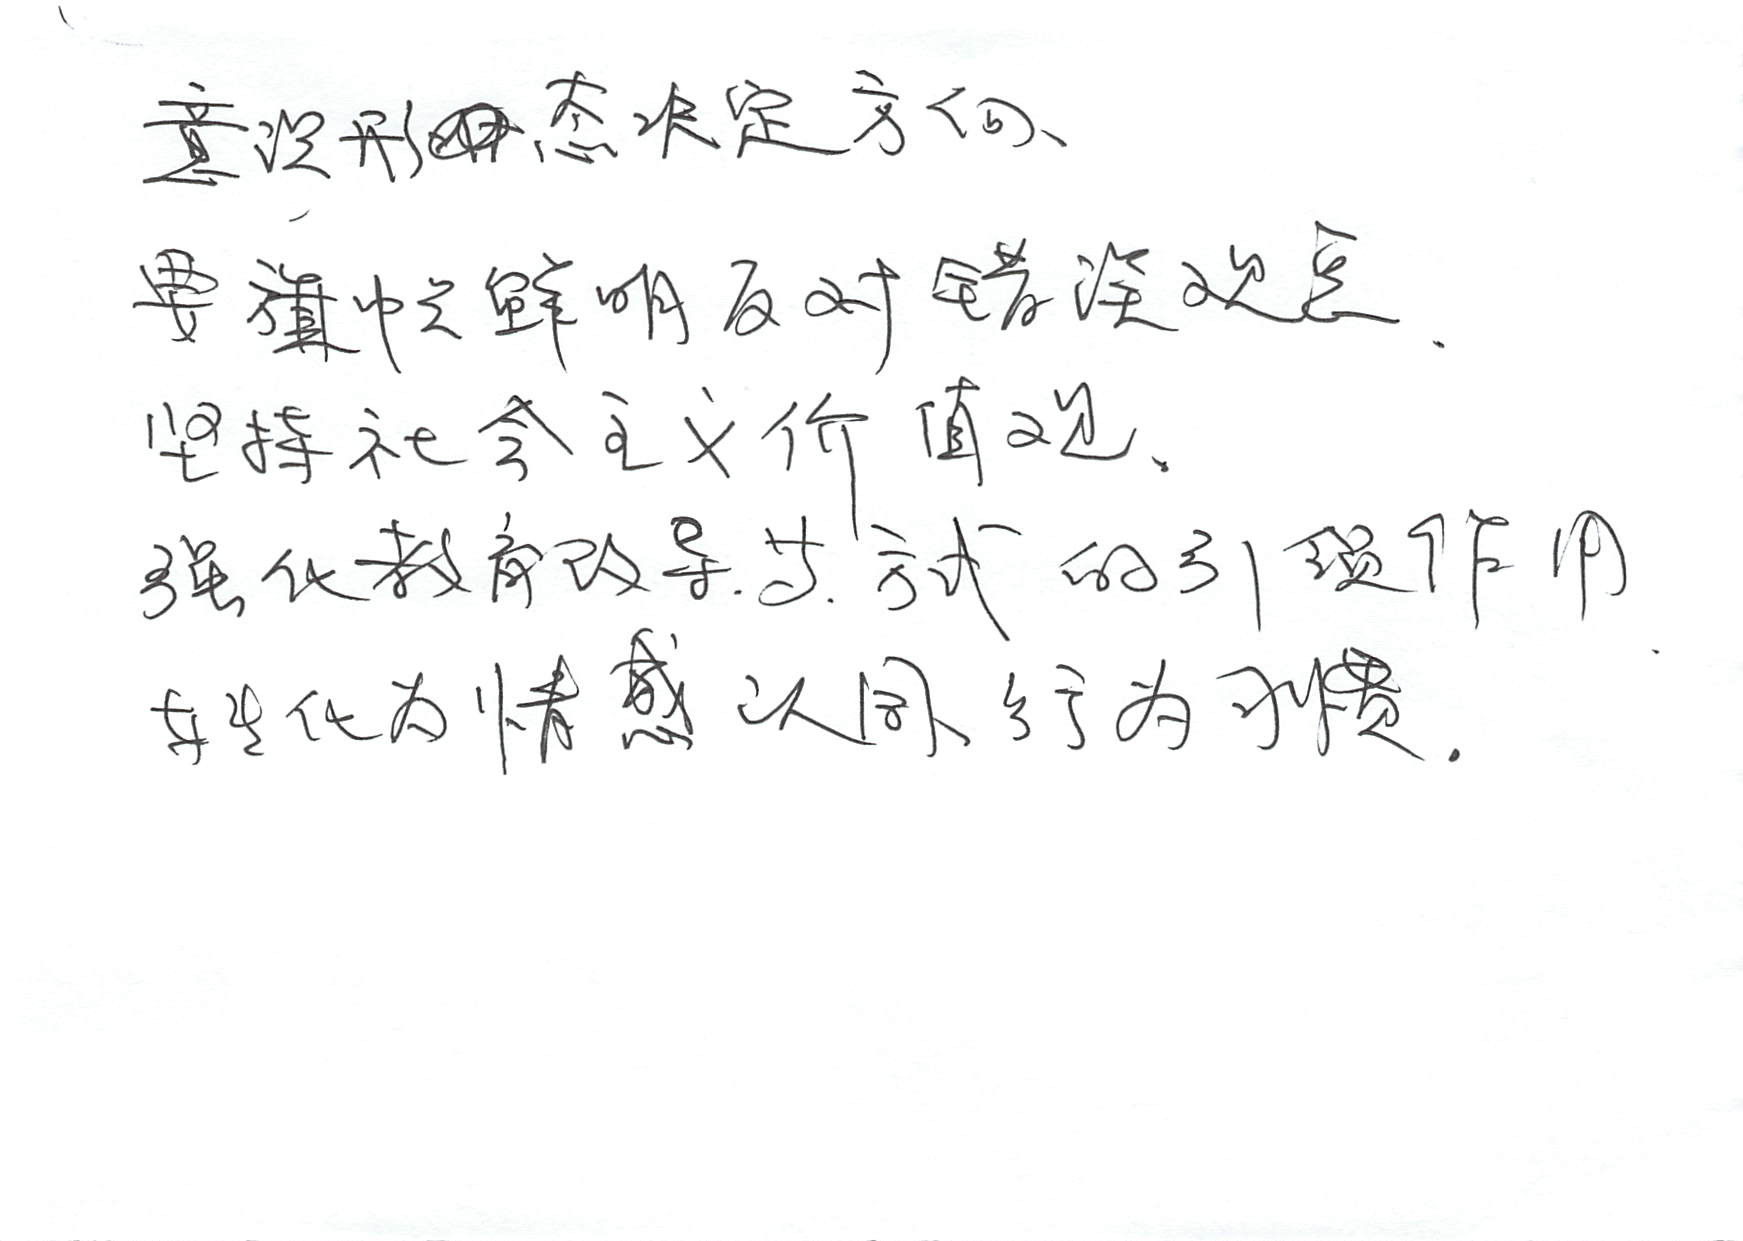 意识形态决定方向、
要旗帜鲜明反对错误观点.
坚持社会主义价值观、
强化教育改导.等.方式的引领作用.
转化为情感认同、行为习惯.